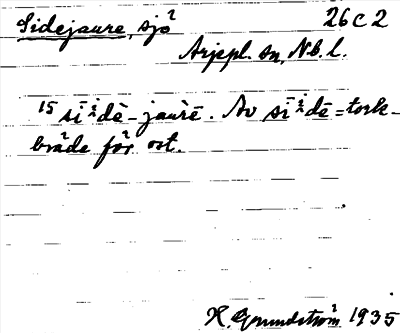 Sidejaure, sjö 26 C 2
Arjepl. sn, Nb. l.
15 sīi̯dē-jaùrē. Av sīi̯dē = tork-
bräde för ost.
H. Grundström 1935